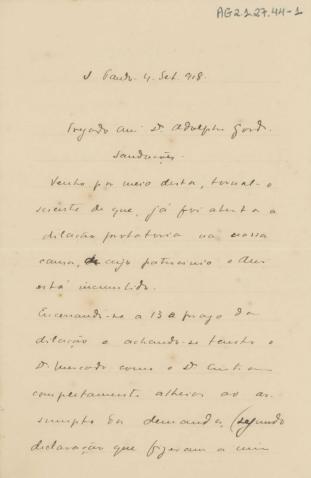 AG2.1.27.44-1
S. Paulo. 4. Set. 918.
Prezado am. Dr. Adolpho Gordo.
Saudações.
Venho por meio desta, tornal-o
sciente de que, já foi aberta a
dilação probatoria na nossa
causa, de cujo patrocinio o Dr.
está incumbido.
Encerrando-se a 13 o prazo da
dilação e achando-se tanto o
Dr. como o Dr.
completamente alheios ao as-
sumpto da demanda, (segundo
declaração que fizeram a mim